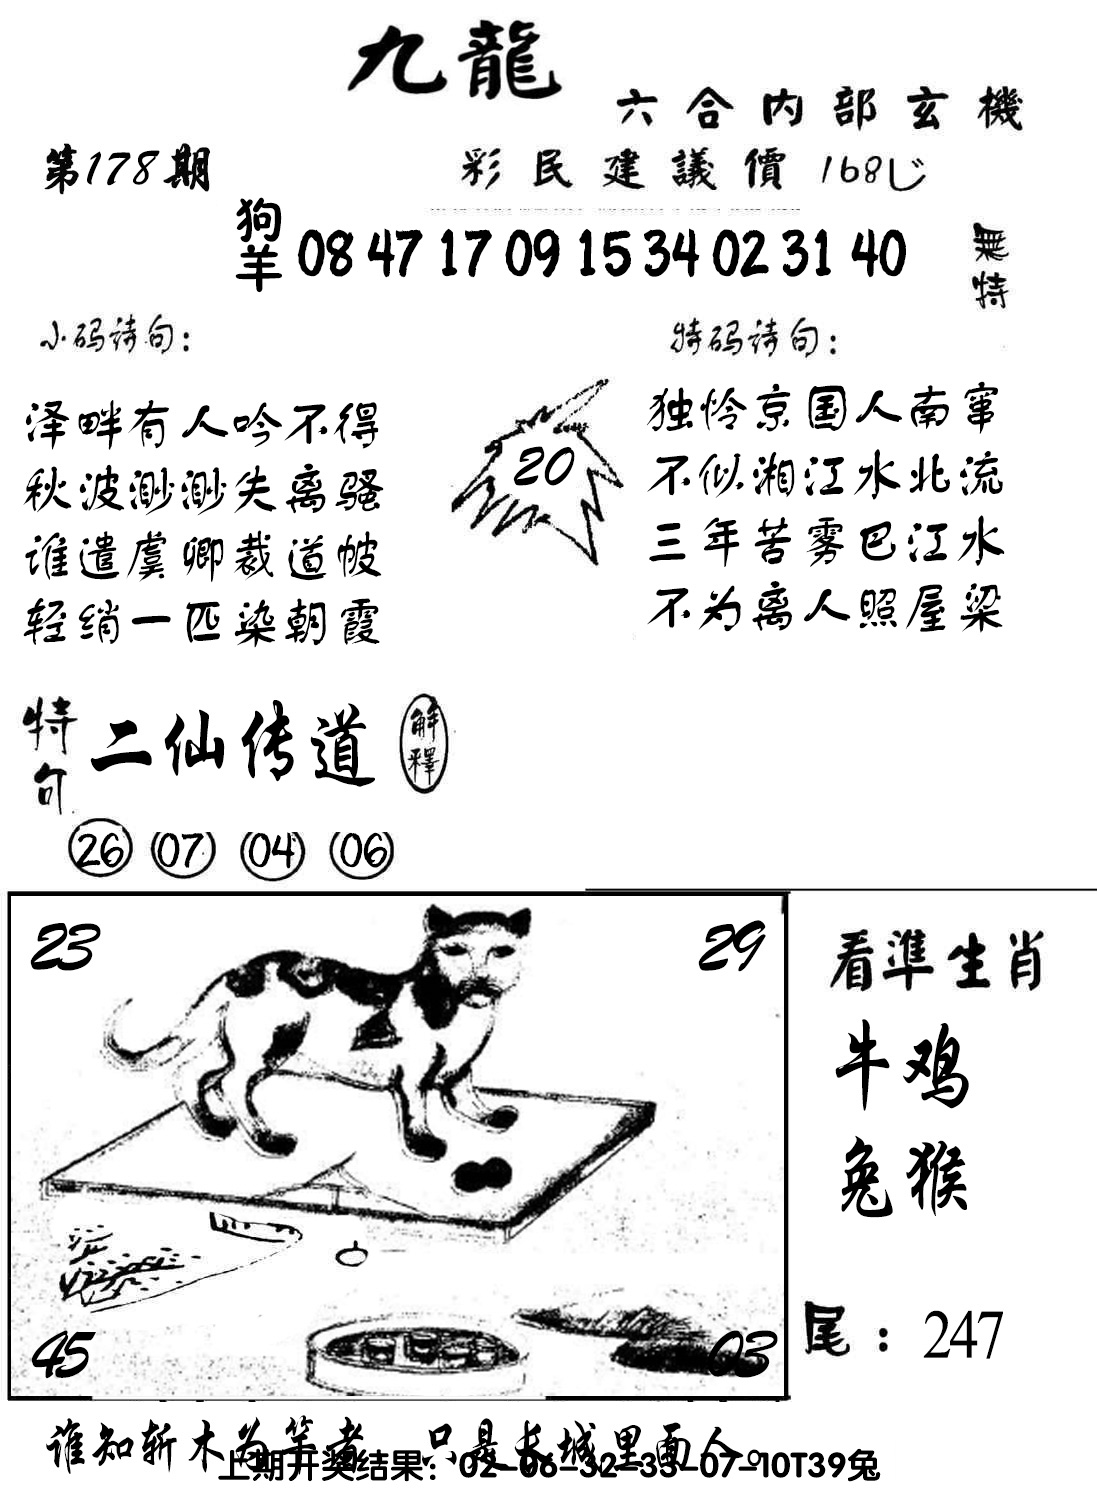 九龍
六合内部玄機
第178期
彩民建議價 168
狗羊 08 47 17 09 15 34 02 31 40 無特
小码诗句：
泽畔有人吟不得
秋波渺渺失离骚
谁遣虞卿裁道帔
轻绡一匹染朝霞
20
特码诗句：
独怜京国人南窜
不似湘江水北流
三年苦雾巴江水
不为离人照屋梁
特句 二仙传道 解釋
26 07 04 06
23
29
45
03
看準生肖
牛鸡
兔猴
尾：247
谁知斩木为竿者 只是长城里面人。
上期开奖结果：02-06-32-33-07-10T39兔